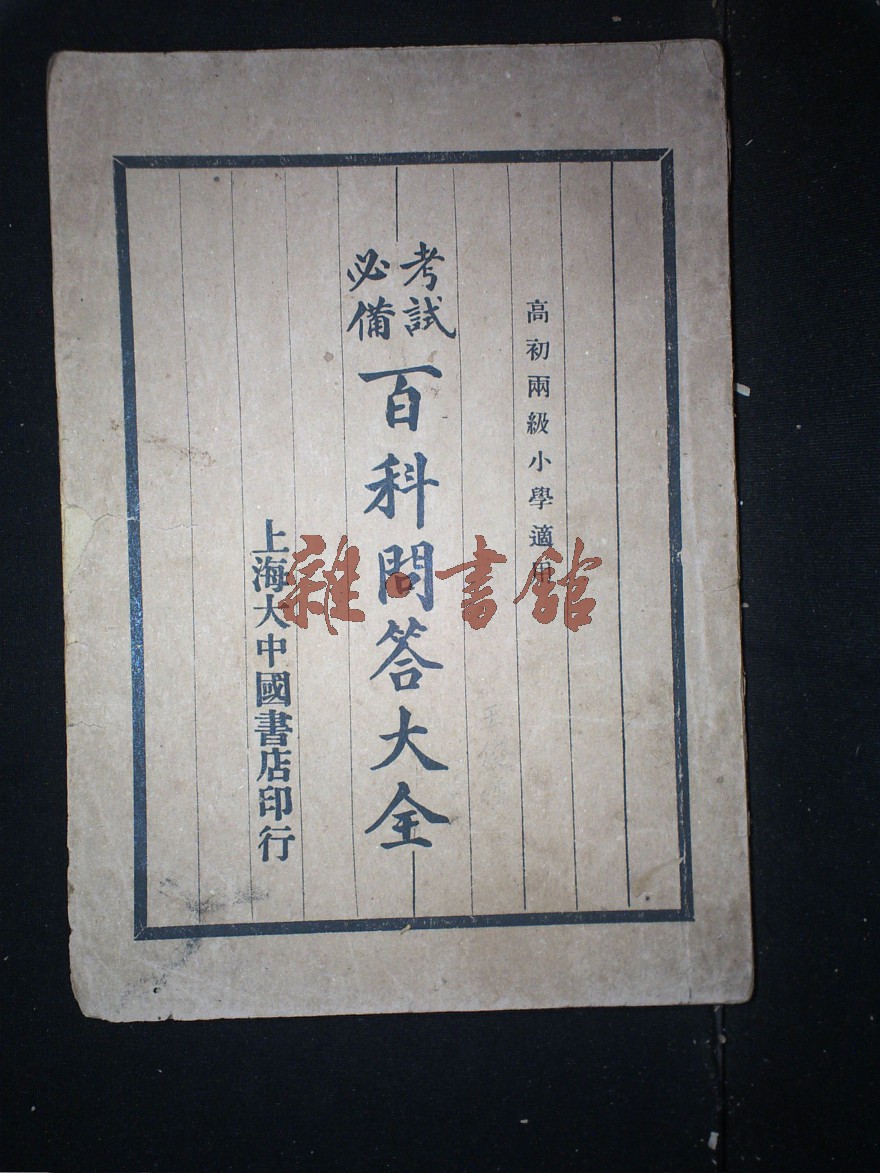 高初兩級小學適用
考試
必備
百科問答大全
上海大中國書店印行
雜·書館